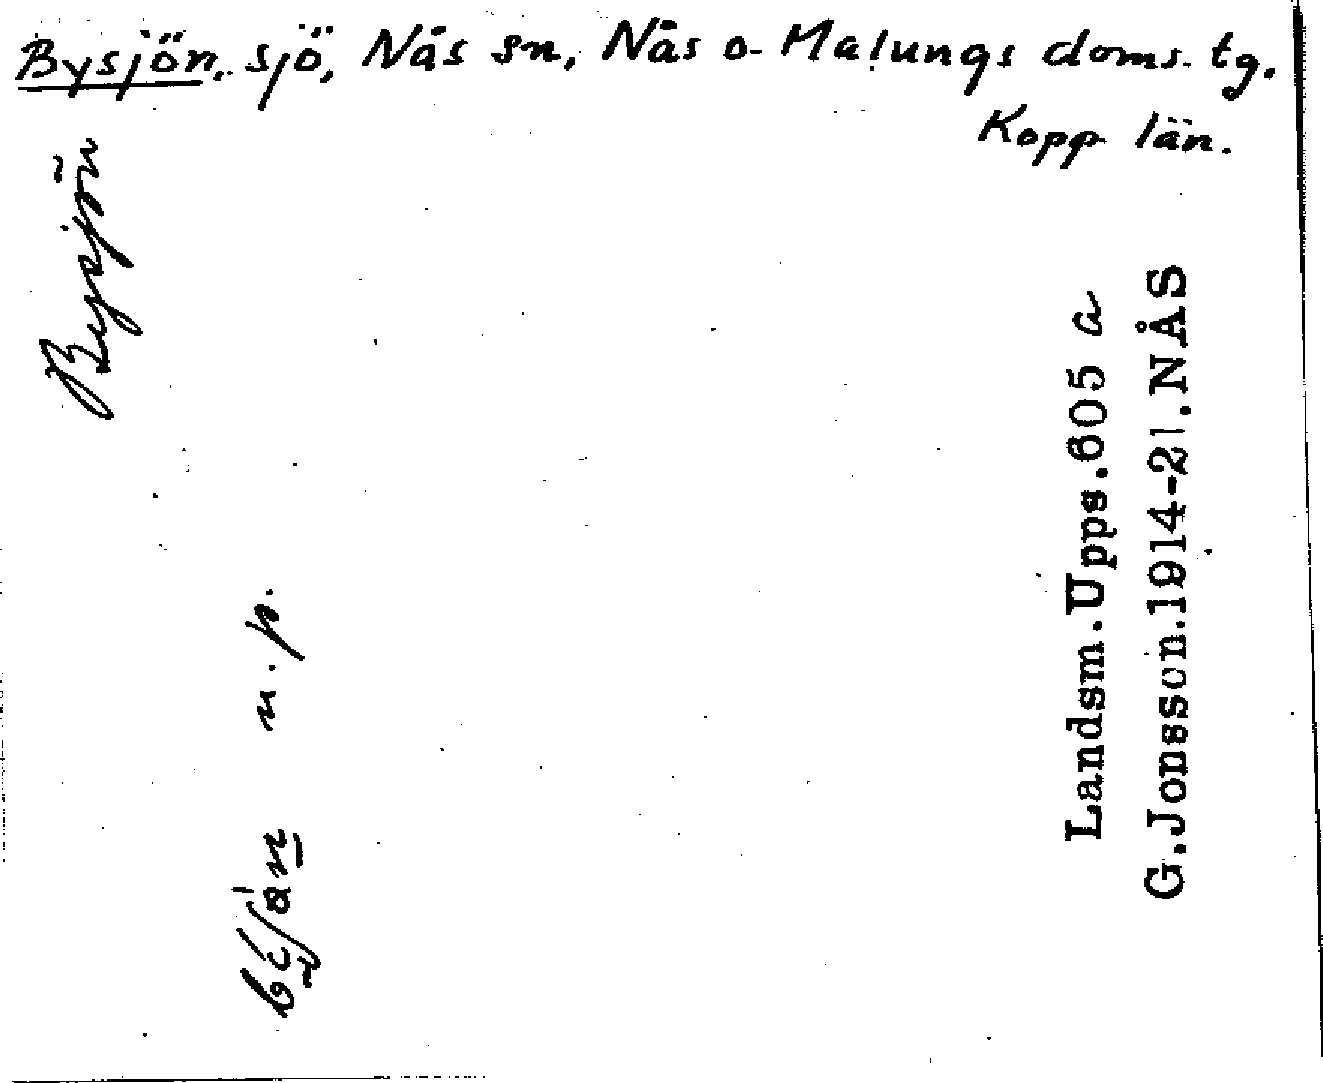 Bysjön, sjö, Nås sn, Nås o. Malungs doms. tg.
Kopp län.
Bysjön
n.p.
Landsm.Upps.605 a
G.Jonsson.1914-21.NÅS